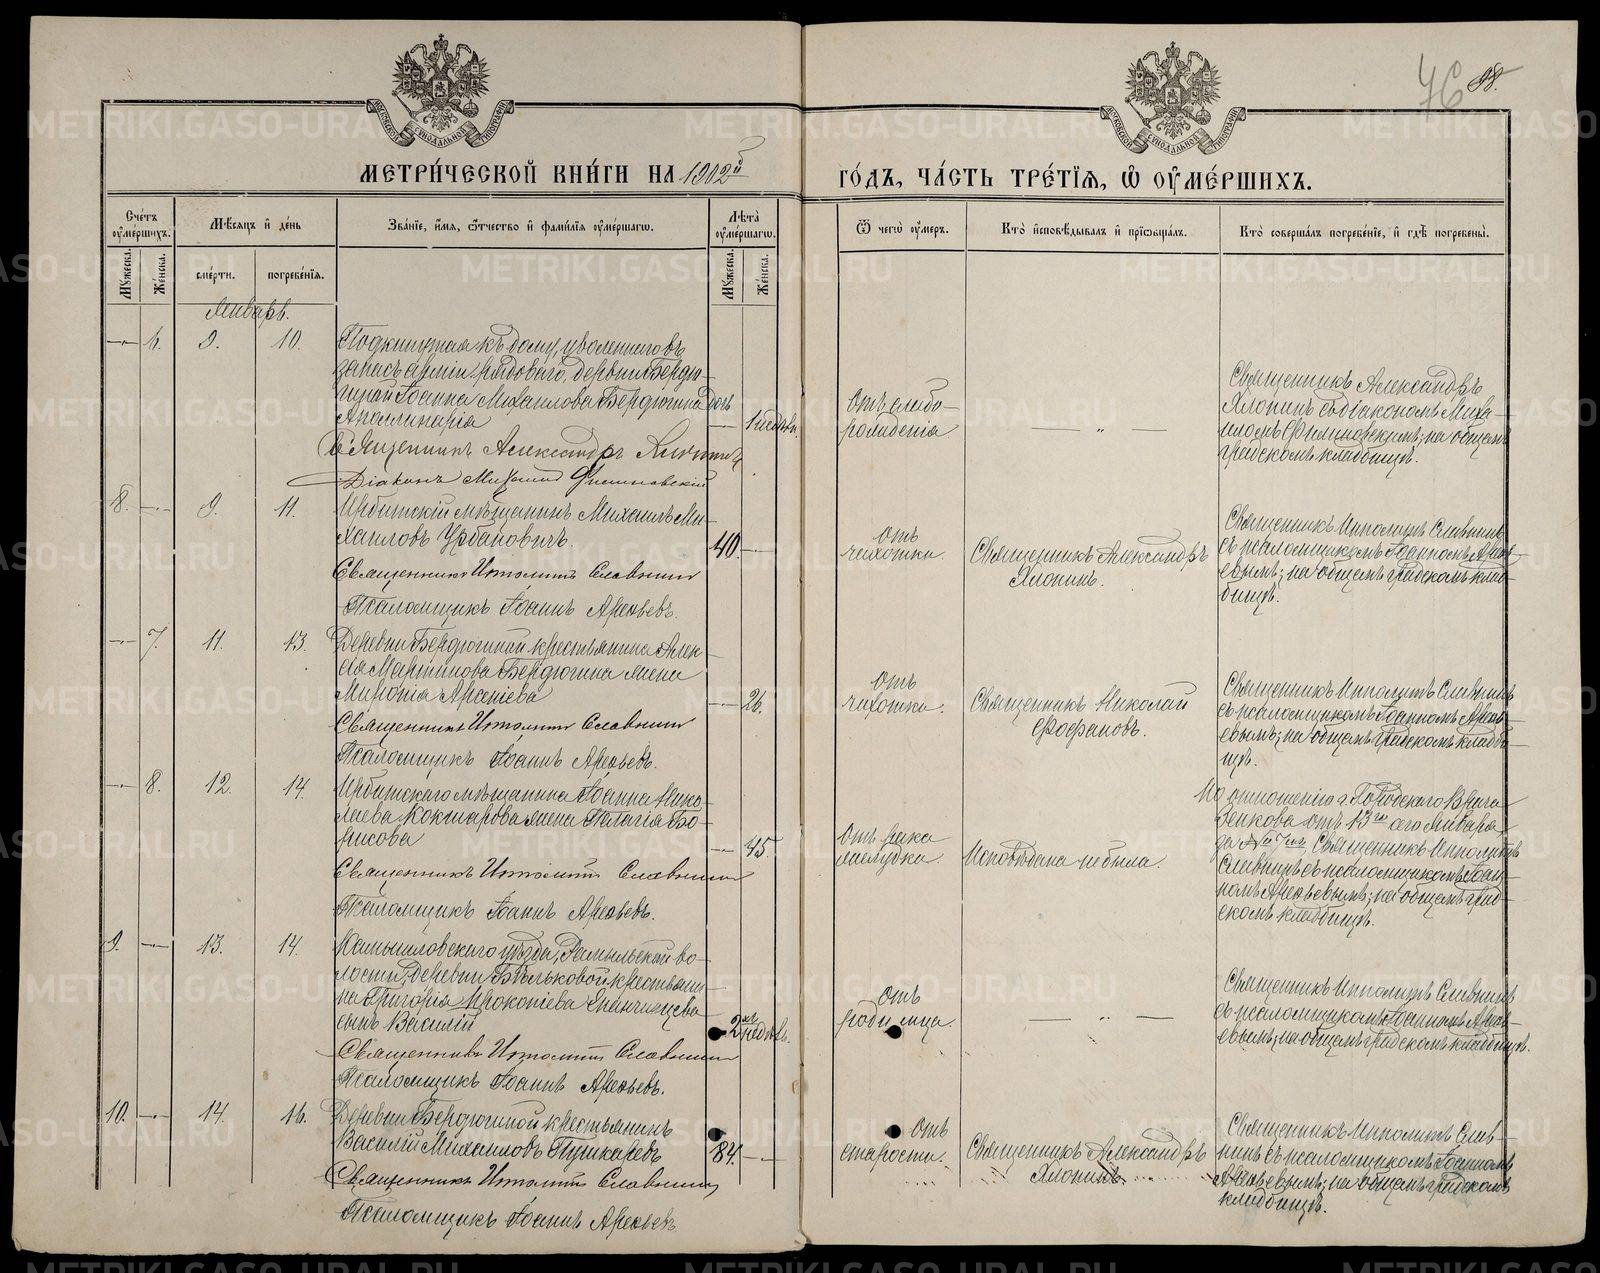 76 88.
МЕТРИ́ЧЕСКОЙ КНИ́ГИ НА 1902й
ГО́ДЪ, ЧА́СТЬ ТРЕ́ТІЯ, Ѽ ОУ҆МЕ́РШИХЪ.
Сче́тъ оу҆ме́ршихъ.
Мѣ́сяцъ и҆ де́нь
Зва́нїе, и҆́мя, ѻ҆́тчество и҆ фами́лїя оу҆ме́ршагѡ.
Лѣ́та оу҆ме́ршагѡ.
Ѿ чегѡ̀ оу҆́меръ.
Кто̀ и҆сповѣ́дывалъ и҆ прїѡбща́лъ.
Кто̀ соверша́лъ погребе́нїе, и҆ гдѣ̀ погребены̀.
Му́жеска.
Же́нска.
сме́рти.
погребе́нїя.
Му́жеска.
Же́нска.
Январь.
6. 9. 10.
Подкинутая къ дому, уволеннаго въ
запасъ арміи рядоваго, деревни Бердю-
гиной Іоанна Михаилова Бердюгина дочь
Аполлинарія
1 недѣли.
Священникъ Александръ Хлопинъ
Діаконъ Михаилъ
отъ слабо-
рожденія
Священникъ Александръ
Хлопинъ съ діакономъ Миха-
иломъ на общемъ
градскомъ кладбищѣ.
8. 9. 11.
Ирбитскій мѣщанинъ Михаилъ Ми-
хаиловъ Урбановичъ.
40.
Священникъ Ипполитъ Славнинъ
Псаломщикъ Іоаннъ Арефьевъ.
отъ
чахотки.
Священникъ Александръ
Хлопинъ.
Священникъ Ипполитъ Славнинъ
съ псаломщикомъ Іоанномъ Арефь-
евымъ; на общемъ градскомъ клад-
бищѣ.
7. 11. 13.
Деревни Бердюгиной крестьянина Алек-
сѣя Мартинова Бердюгина жена
Миронія Арсеніева
26.
Священникъ Ипполитъ Славнинъ
Псаломщикъ Іоаннъ Арефьевъ.
отъ
чахотки.
Священникъ Николай
Фофановъ.
Священникъ Ипполитъ Славнинъ
съ псаломщикомъ Іоанномъ Арефь-
евымъ; на общемъ градскомъ кладби-
щѣ.
8. 12. 14.
Ирбитскаго мѣщанина Іоанна Нико-
лаева Кокшарова жена Пелагія Бо-
рисова
45.
Священникъ Ипполитъ Славнинъ
Псаломщикъ Іоаннъ Арефьевъ.
отъ рака
желудка.
Исповѣдана не была.
По отношенію г. Городскаго Врача
отъ 13го сего Января
за № Священникъ Ипполитъ
Славнинъ съ псаломщикомъ Іоан-
номъ Арефьевымъ; на общемъ град-
скомъ кладбищѣ.
9. 13. 14.
Камышловскаго уѣзда, Рамыльской во-
лости, деревни Бѣльковой крестьяни-
на Григорія Прокопіева Епанчинцева
сынъ Василій
2хъ недѣль.
Священникъ Ипполитъ Славнинъ
Псаломщикъ Іоаннъ Арефьевъ.
отъ
родимца.
Священникъ Ипполитъ Славнинъ
съ псаломщикомъ Іоанномъ Арефь-
евымъ; на общемъ градскомъ кладбищѣ.
10. 14. 16.
Деревни Бердюгиной крестьянинъ
Василій Михаиловъ Пушкаревъ
84.
Священникъ Ипполитъ Славнинъ
Псаломщикъ Іоаннъ Арефьевъ
отъ
старости.
Священникъ Александръ
Хлопинъ.
Священникъ Ипполитъ Слав-
нинъ съ псаломщикомъ Іоанномъ
Арефьевымъ; на общемъ градскомъ
кладбищѣ.
METRIKI.GASO-URAL.RU